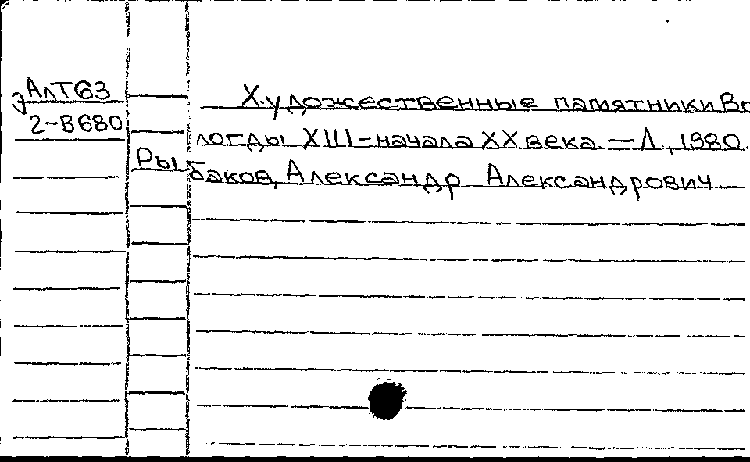 эАлТ63
2-8680
Художественные памятники Во
логды XIII-начала XX века. — Л., 1980.
Рыбаков, Александр Александрович